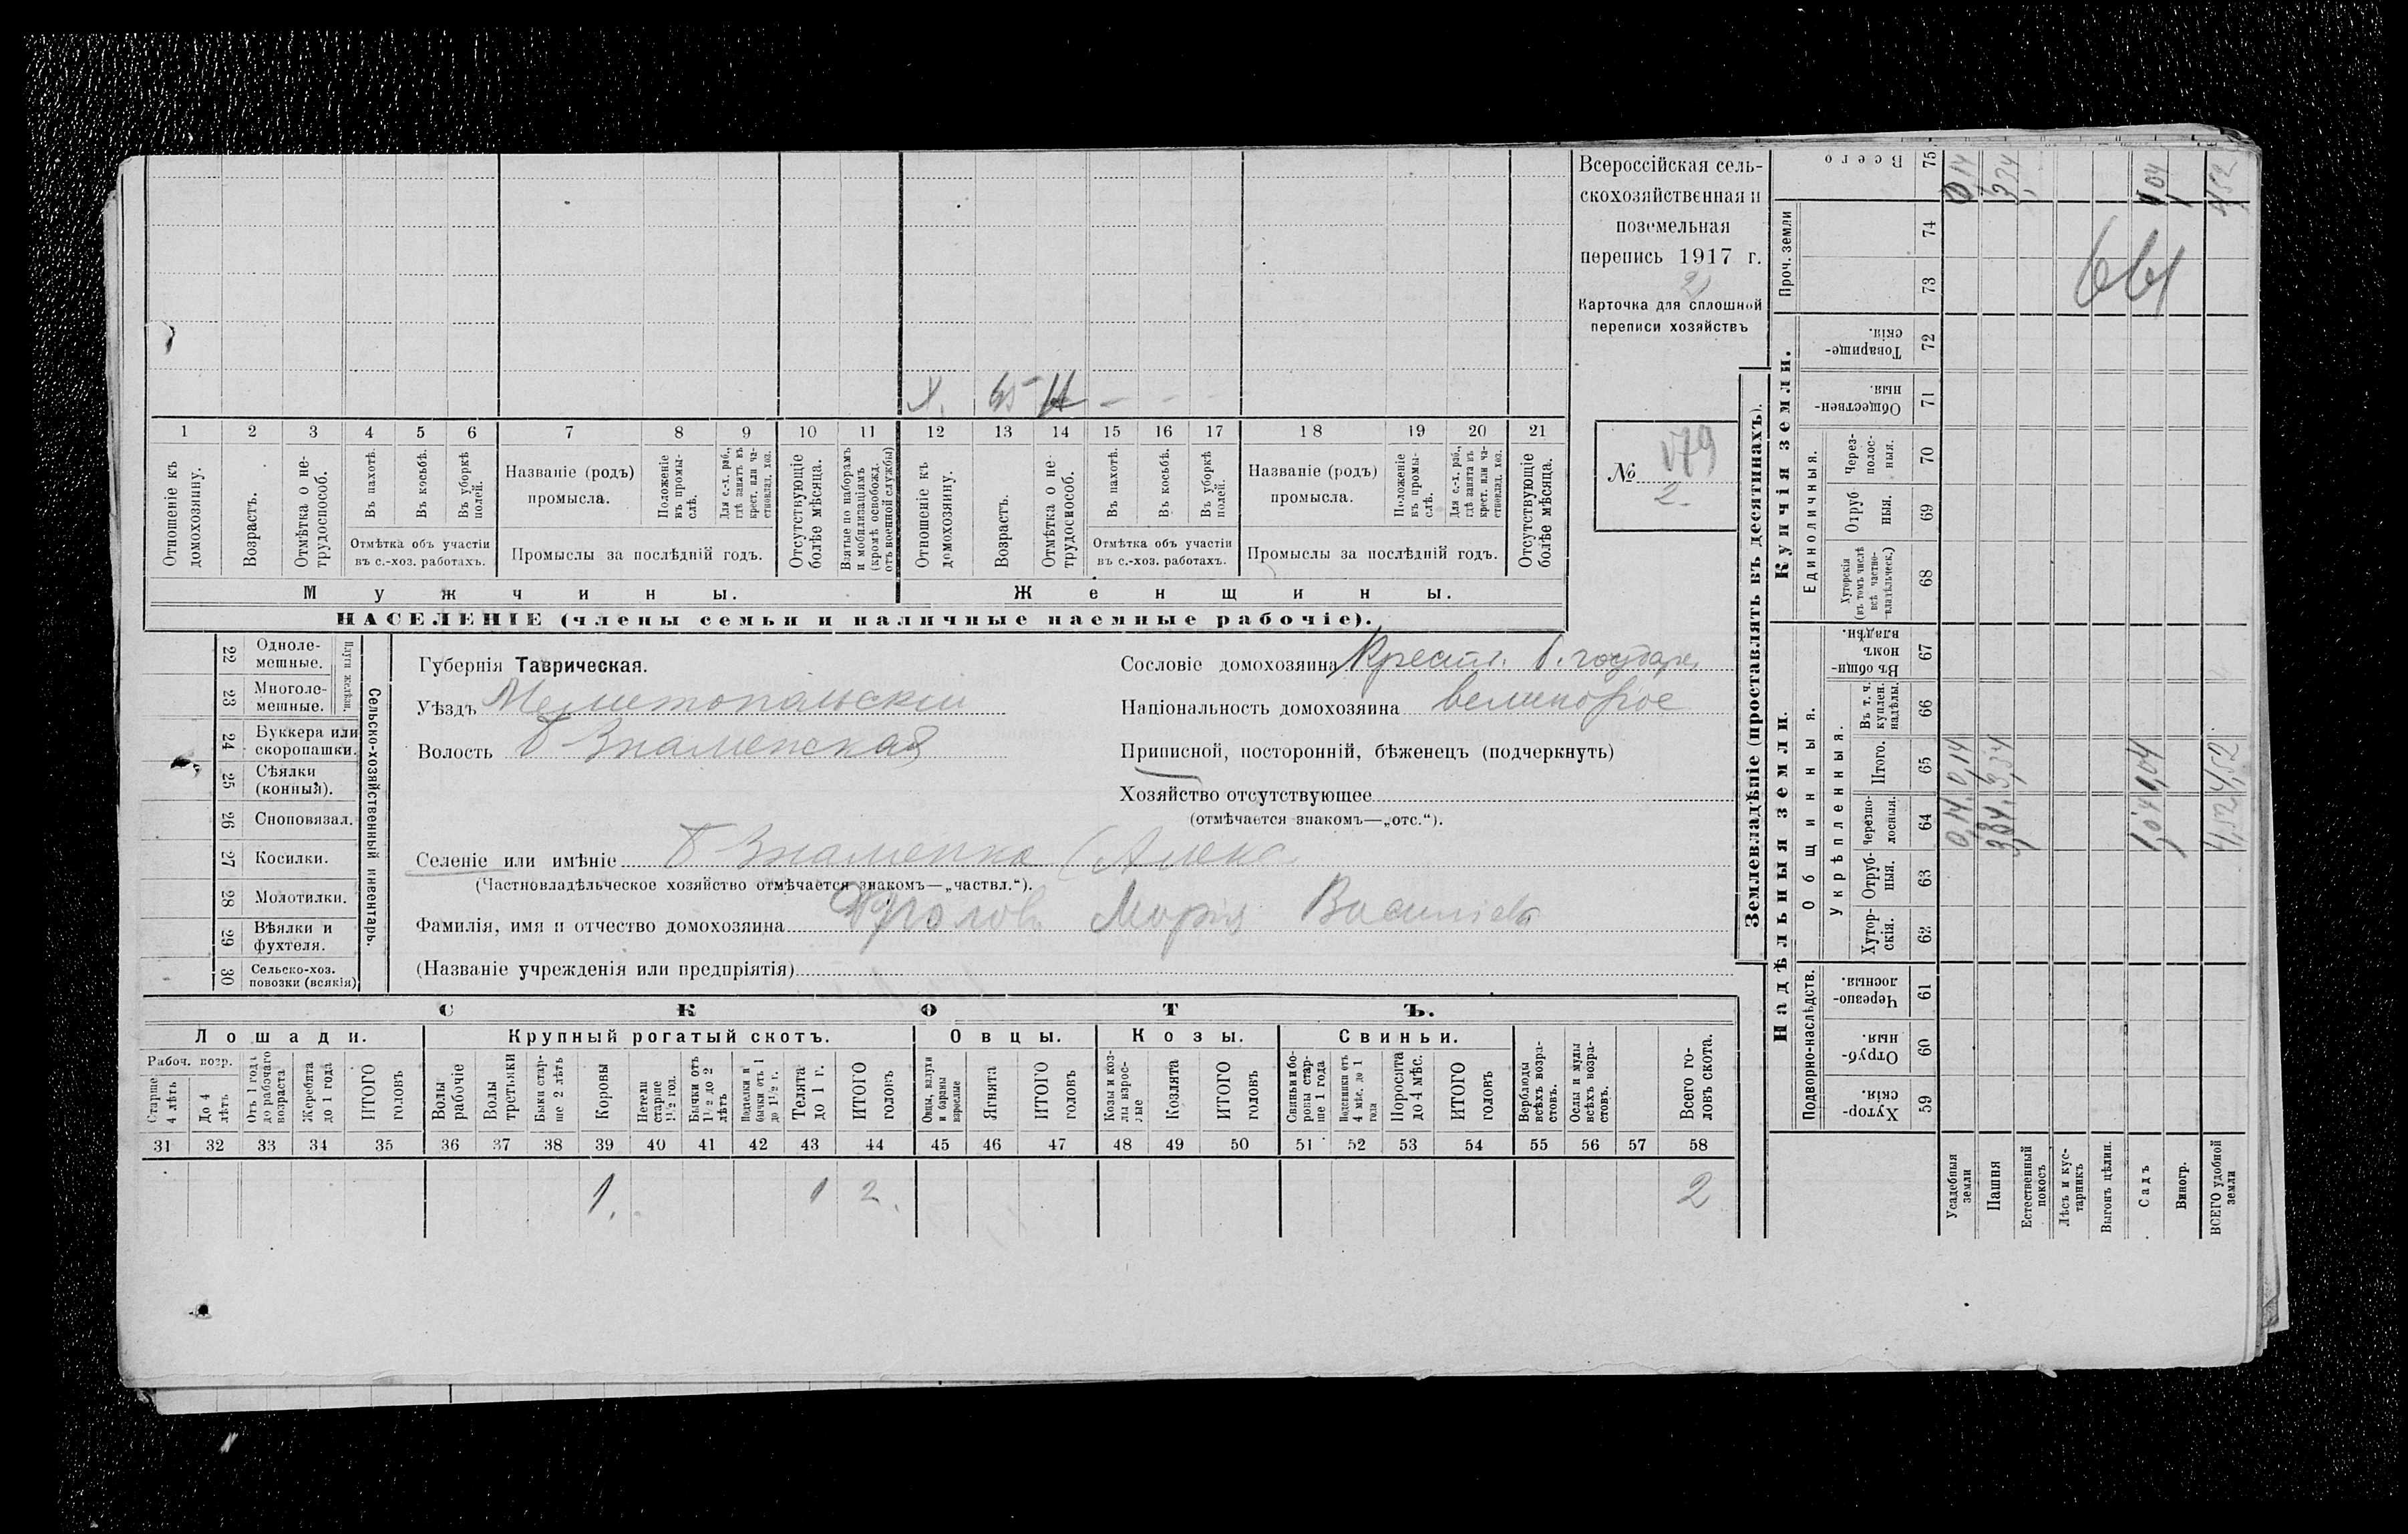 Всероссійская сель-
скохозяйственная и
поземельная
перепись 1917 г.
2
Карточка для сплошной
переписи хозяйствъ
№ 179
2.
Х. 65 Н — - -
1 2 3 4 5 6 7 8 9 10 11 12 13 14 15 16 17 18 19 20 21
Отношеніе къ домохозяину.
Возрастъ.
Отмѣтка о не-трудоспособ.
Въ пахотѣ.
Въ косьбѣ.
Въ уборкѣ полей.
Отмѣтка объ участіи
въ с.-хоз. работахъ.
Названіе (родъ)
промысла.
Положеніе въ промы-слѣ.
Для с.-х. раб., гдѣ занятъ въ крест. или ча-стновлад. хоз.
Промыслы за послѣдній годъ.
Отсутствующіе болѣе мѣсяца.
Взятые по наборамъ и мобилизаціямъ (кромѣ освобожд. отъ военной службы)
Отношеніе къ домохозяину.
Возрастъ.
Отмѣтка о не-трудоспособ.
Въ пахотѣ.
Въ косьбѣ.
Въ уборкѣ полей.
Отмѣтка объ участіи
въ с.-хоз. работахъ.
Названіе (родъ)
промысла.
Положеніе въ промы-слѣ.
Для с.-х. раб., гдѣ занята въ крест. или ча-стновлад. хоз.
Промыслы за послѣдній годъ.
Отсутствующіе болѣе мѣсяца.
Мужчины.
Женщины.
НАСЕЛЕНІЕ (члены семьи и наличные наемные рабочіе).
22 Одноле-мешные.
23 Многоле-мешные.
Плуги желѣзн.
24 Буккера или скоропашки.
25 Сѣялки (конныя).
26 Сноповязал.
27 Косилки.
28 Молотилки.
29 Вѣялки и фухтеля.
30 Сельско-хоз. повозки (всякія)
Сельско-хозяйственный инвентарь.
Губернія Таврическая.
Уѣздъ Мелитопольскій
Волость Б Знаменская
Селеніе или имѣніе Б Знаменка (Алекс
(Частновладѣльческое хозяйство отмѣчается знакомъ—„частвл.“).
Фамилія, имя и отчество домохозяина Фролов Марія Василіев
(Названіе учрежденія или предпріятія)
Сословіе домохозяина Крестн. б. государ
Національность домохозяина великорос
Приписной, посторонній, бѣженецъ (подчеркнуть)
Хозяйство отсутствующее
(отмѣчается знакомъ—„отс.“).
СКОТЪ.
Лошади. Крупный рогатый скотъ. Овцы. Козы. Свиньи.
Рабоч. возр.
Старше 4 лѣтъ
До 4 лѣтъ
Отъ 1 года до рабочаго возраста
Жеребята до 1 года
ИТОГО головъ
Волы рабочіе
Волы третьяки
Быки стар-ше 2 лѣтъ
Коровы
Нетели старше 1½ год.
Бычки отъ 1½ до 2 лѣтъ
Подтелки и бычки отъ 1 до 1½ г.
Телята до 1 г.
ИТОГО головъ
Овцы, валухи и бараны взрослые
Ягнята
ИТОГО головъ
Козы и коз-лы взрос-лые
Козлята
ИТОГО головъ
Свиньи и бо-ровы стар-ше 1 года
Подсвинки отъ 4 мѣс. до 1 года
Поросята до 4 мѣс.
ИТОГО головъ
Верблюды всѣхъ возра-стовъ.
Ослы и мулы всѣхъ возра-стовъ.
Всего го-ловъ скота.
31 32 33 34 35 36 37 38 39 40 41 42 43 44 45 46 47 48 49 50 51 52 53 54 55 56 57 58
1. 1 2. 2
Землевладѣніе (проставлять въ десятинахъ).
Купчія земли.
Надѣльныя земли.
Проч. земли
Всего 75
74
73
Товарище-скія. 72
Обществен-ныя. 71
Единоличныя.
Через-полос-ныя. 70
Отруб ныя. 69
Хуторскія (въ томъ числѣ всѣ частно-владѣльческ.) 68
Въ общи-номъ владѣн. 67
Общинныя.
Укрѣпленныя.
Въ т. ч. куплен. надѣлы. 66
Итого. 65
Черезпо-лосныя. 64
Отруб-ныя. 63
Хутор-скія. 62
Подворно-наслѣдств.
Черезпо-лосныя. 61
Отруб-ныя. 60
Хутор-скія. 59
Усадебныя земли 0,14 0,14 0,14
Пашня 3,34 3,34 3,34
Естественный покосъ
Лѣсъ и кус-тарникъ
Выгонъ цѣлин.
Садъ 1,04 1,04 1,04
Виногр.
ВСЕГО удобной земли 4,52 4,52 4,52